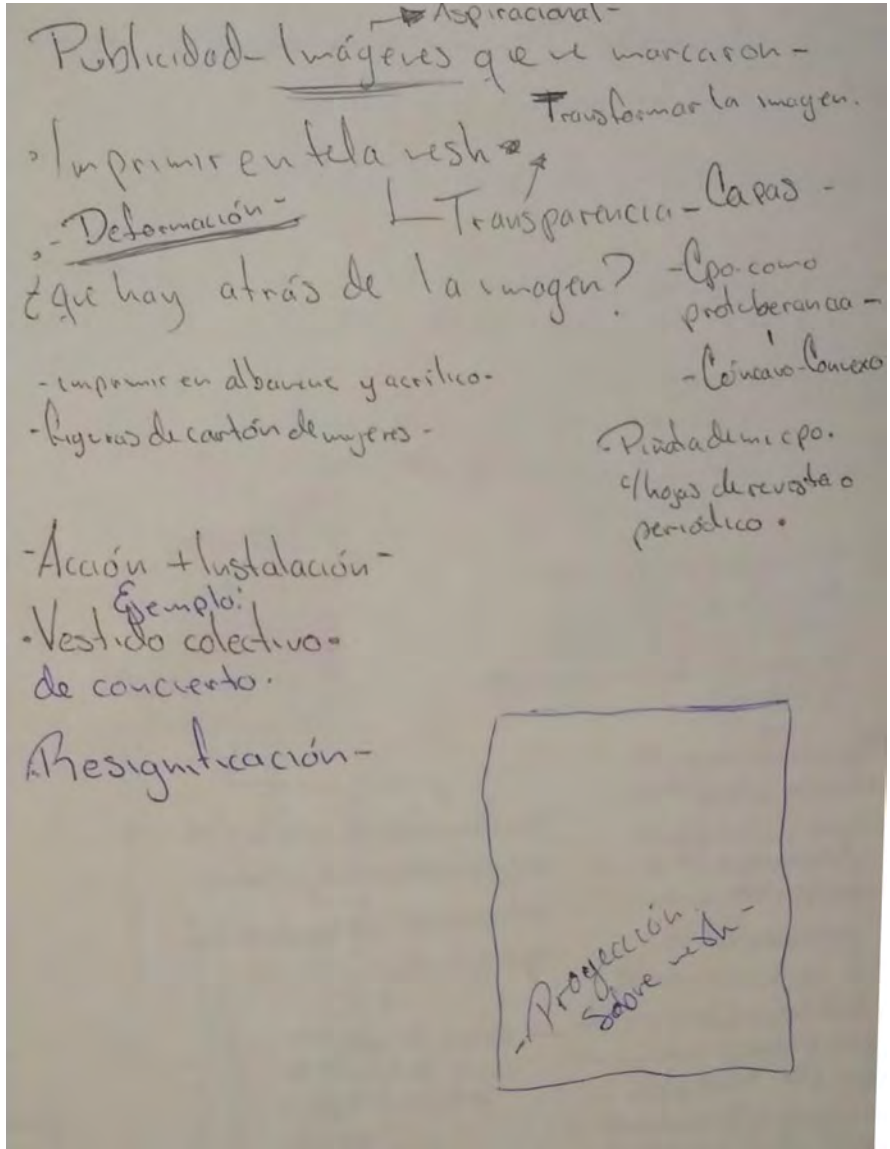 Aspiracional-
Publicidad- Imágenes que me marcaron-
Transformar la imagen.
Imprimir en tela mesh
- Deformación -
Transparencia - Capas -
¿Qué hay atrás de la imagen?
- Cpo. como
protuberancia -
- Cóncavo-Convexo
- imprimir en albanene y acrílico-
- figuras de cartón de mujeres -
- Piñata de mi cpo.
c/hojas de revista o
periódico.
- Acción + Instalación -
Ejemplo:
• Vestido colectivo.
de concierto.
Resignificación-
- Proyección
sobre mesh-